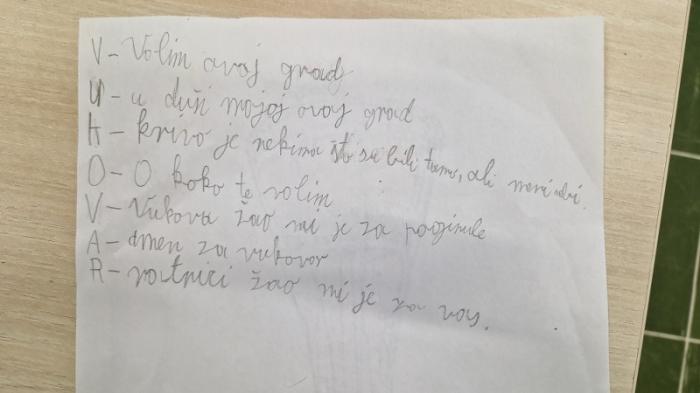 V - Volim ovaj grad
U - u duši mojoj ovaj grad
K - krivo je nekima što su bili tamo, ali meni
O - O koko te volim
V - Vukova žao mi je za poginule
A - Amen za vukovar
R - ratnici žao mi je za vas.